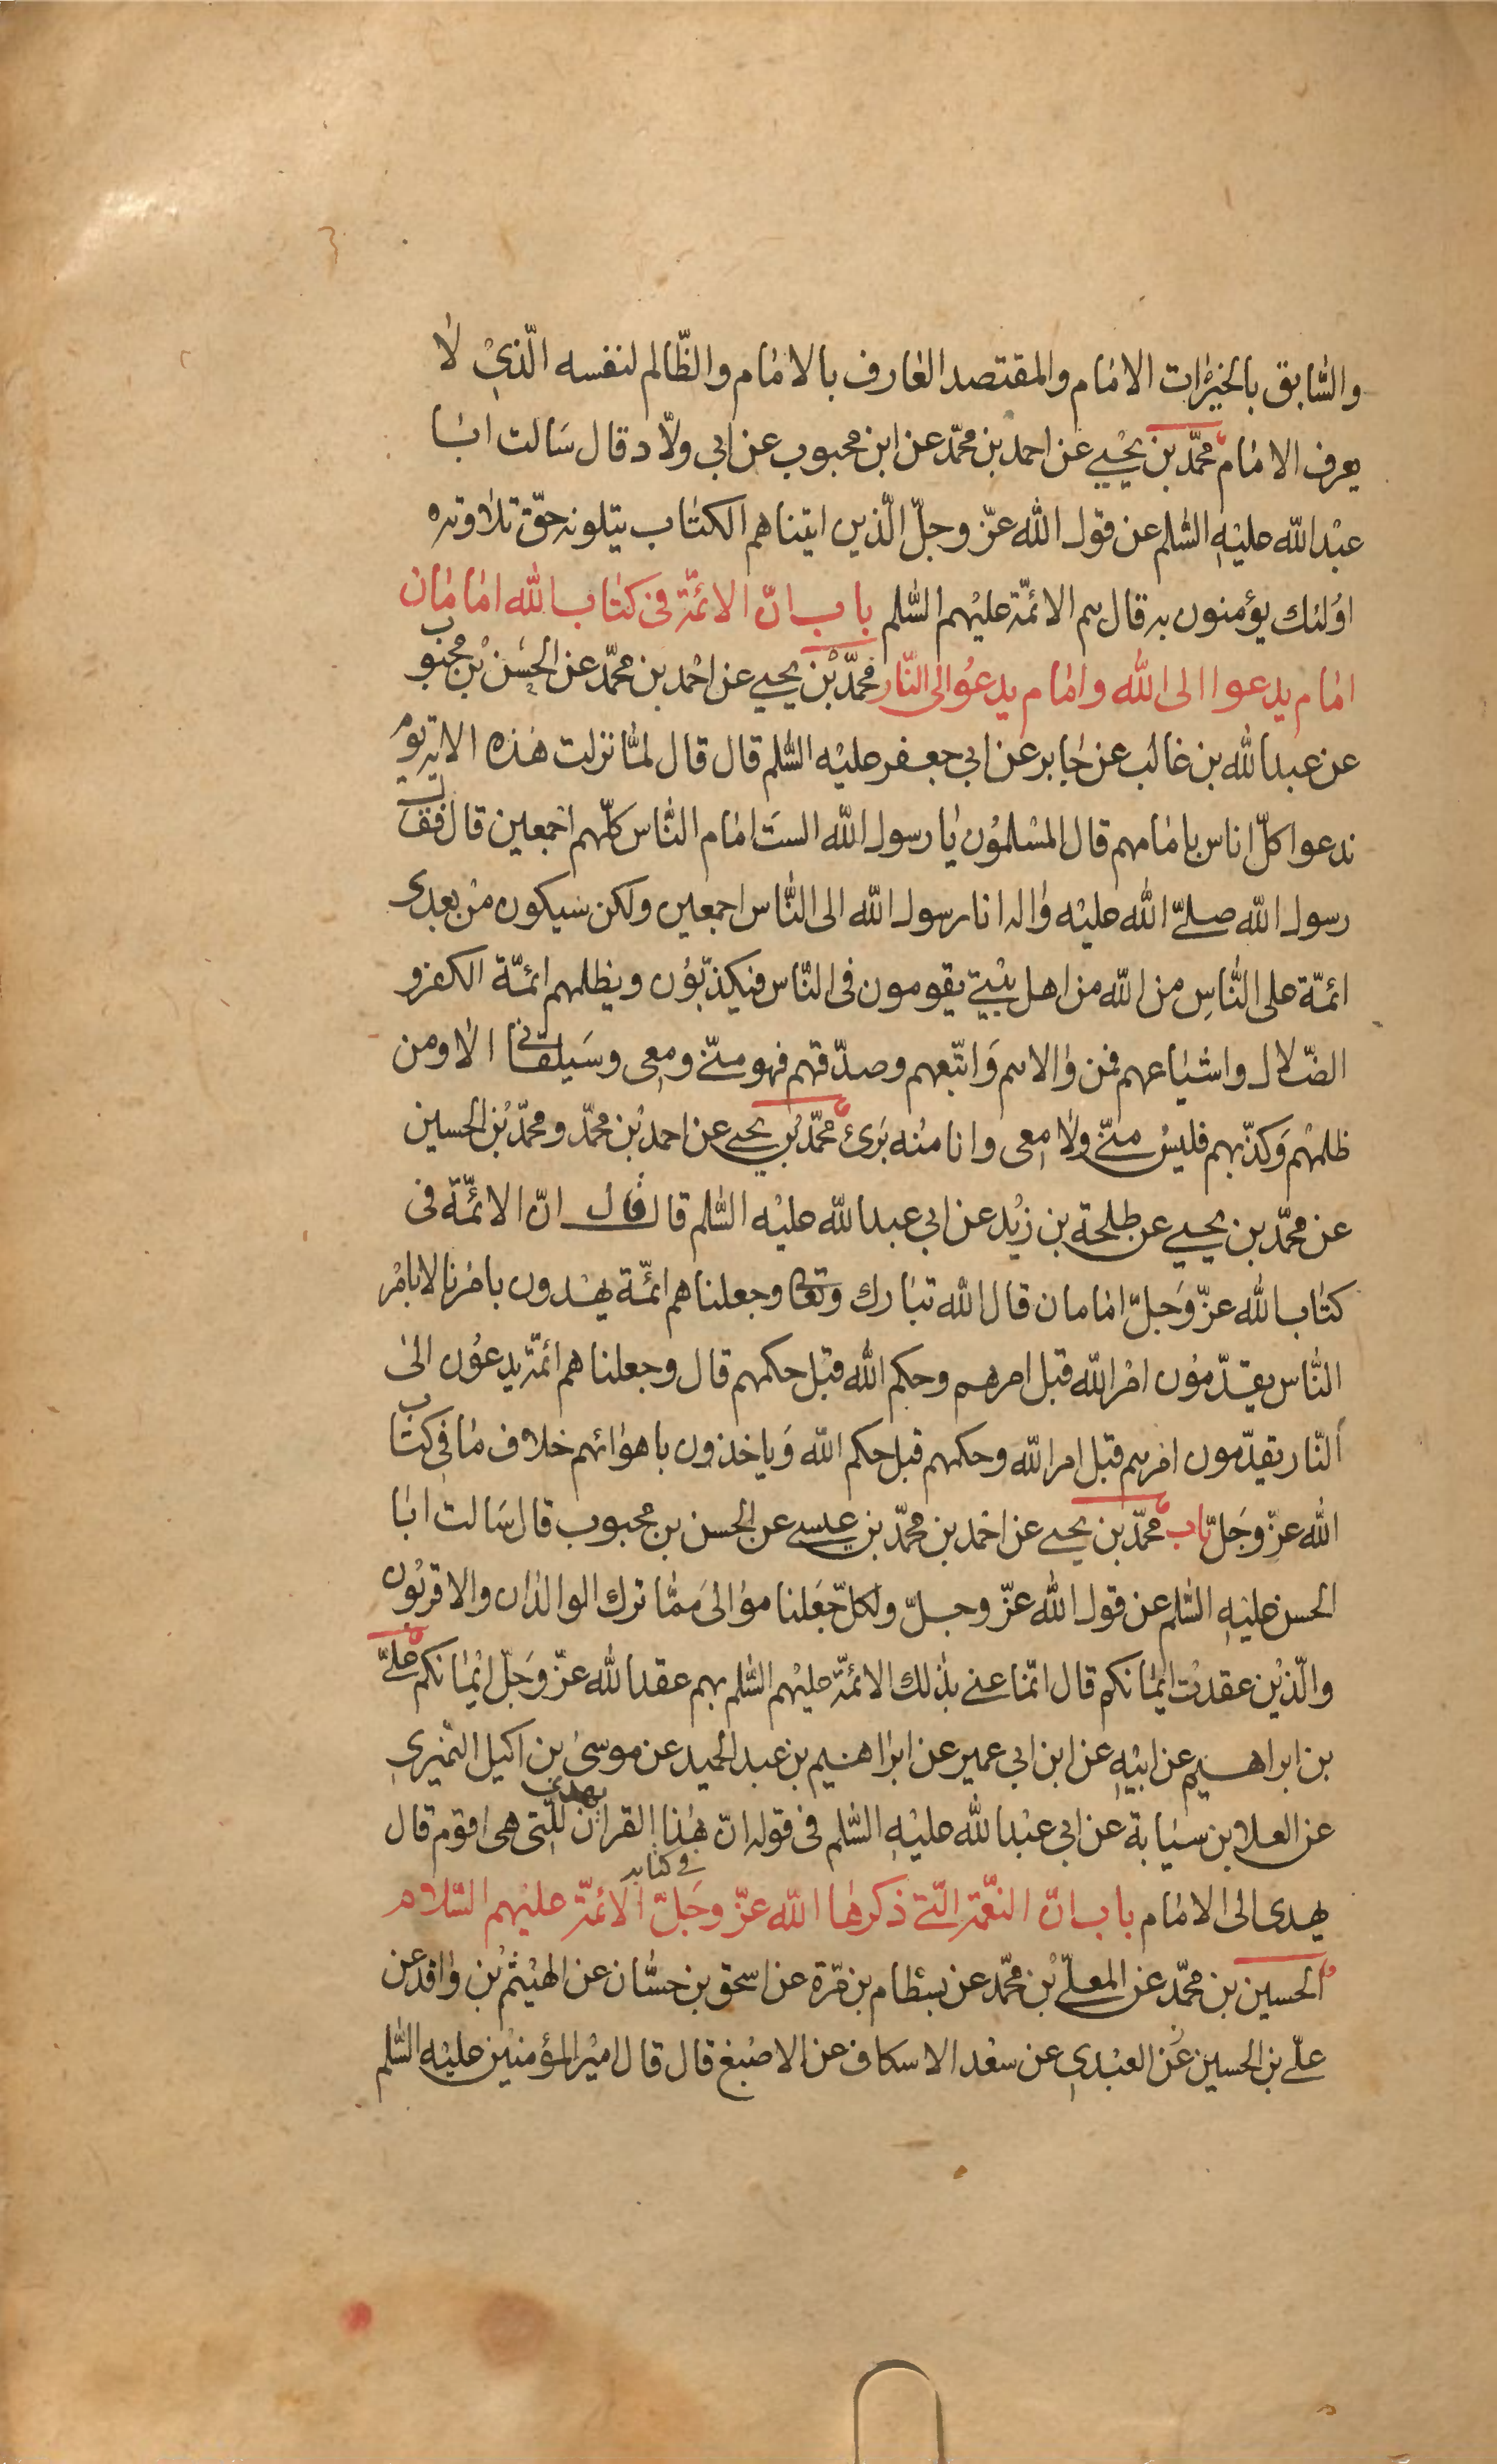 والسّابق بالخيرات الامام والمقتصد العارف بالامام والظّالم لنفسه الّذي لا
يعرف الامام محمّد بن يحيى عن احمد بن محمّد عن ابن محبوب عن ابي ولّاد قال سَالت ابا
عبْد الله عليْهِ السّلم عن قول الله عزّ وجلّ الّذين اتيناهم الكتاب يتلونه حقّ تلاوته
اوُلئك يؤمنون به قال هم الائمّة عليْهم السّلم باب انّ الائمّة فى كتاب الله امامان
امام يدعوا الى الله وامام يدعُو الى النّار محمّد بْن يحيى عن احْمد بن محمّد عن الحسَن بْن محبوب
عن عبد الله بن غالب عن جابر عن ابي جعفر عليْه السّلم قال قال لمّا نزلت هذه الاية يوم
ندعوا كلّ اناس بامامهم قال المسْلموُن يا رسول الله الستَ امام النّاس كلّهم اجمعين قال فقال
رسول الله صلّى الله عليْه واله انا رسول الله الى النّاس اجمعين ولكن سَيكون منْ بعدى
ائمّة على النّاسِ من الله من اهل بيْتى يقومون فى النّاس فيكذّبوُن ويظلمهم ائمّة الكفر و
الضّلال واشياعهم فمن والاهم وَاتّبعهم وصدّقهم فهو منّى ومعى وسَيلقانى الا ومن
ظلمهْم وَكذّبهم فليسْ منّى ولا معى وانا منْه بَرىُ محمّد بْن يحيى عن احمد بْن محمّد ومحمّد بْن الحسين
عن محمّد بن يحيى عن طلحة بن زيْد عن ابي عبد الله عليْه السّلم قال قال انّ الائمّة فى
كتاب الله عزّ وَجلّ امامان قال الله تبارك وتعا وجعلناهم ائمّة يهْدون بامْرنا لا بامْر
النّاس يقدّموُن امْر الله قبل امرهم وحكم الله قبْل حكمهم قال وجعلناهم ائمّة يدعوُن الى
النّار يقدّمون امْرهم قبل امر الله وحكمهم قبل حكم الله وَياخذون باهوائهم خلاف ما فى كتاب
الله عزّ وجَلّ باب محمّد بن يحيى عن احْمد بن محمّد بن عيسى عن الحسن بن محبوب قال سَالت ابا
الحسن عليْهِ السّلم عن قول الله عزّ وجلّ ولكلّ جَعَلنا موالىَ ممّا ترك الوالدان والاقربوُن
والّذيْن عقدتْ ايْمانكم قال انّما عنى بذلك الائمّة عليْهم السّلم بهم عقد الله عزّ وَجَلّ ايْمانكم علىّ
بن ابراهيم عن ابيْهِ عن ابن ابي عمير عن ابراهيم بن عبد الحميد عن موسى بن اكيل النّميري
عن العلا بن سيابة عن ابي عبْد الله عليْهِ السّلم فى قوله انّ هذا القران يهدى للّتى هى اقوم قال
يهدى الى الامام باب انّ النعْمة الّتى ذكرها الله عزّ وجَلّ فى كتابه الائمّة عليْهم السّلام
الحسين بن محمّد عن المعلّى بْن محمّد عن بسْطام بن مرّة عن اسحق بن حسّان عن الهيْثم بْن واقد عن
علىّ بن الحسين عَن العبْدي عن سعْد الاسكاف عن الاصْبغ قال قال اميْر المؤمنيْن عليْه السّلم